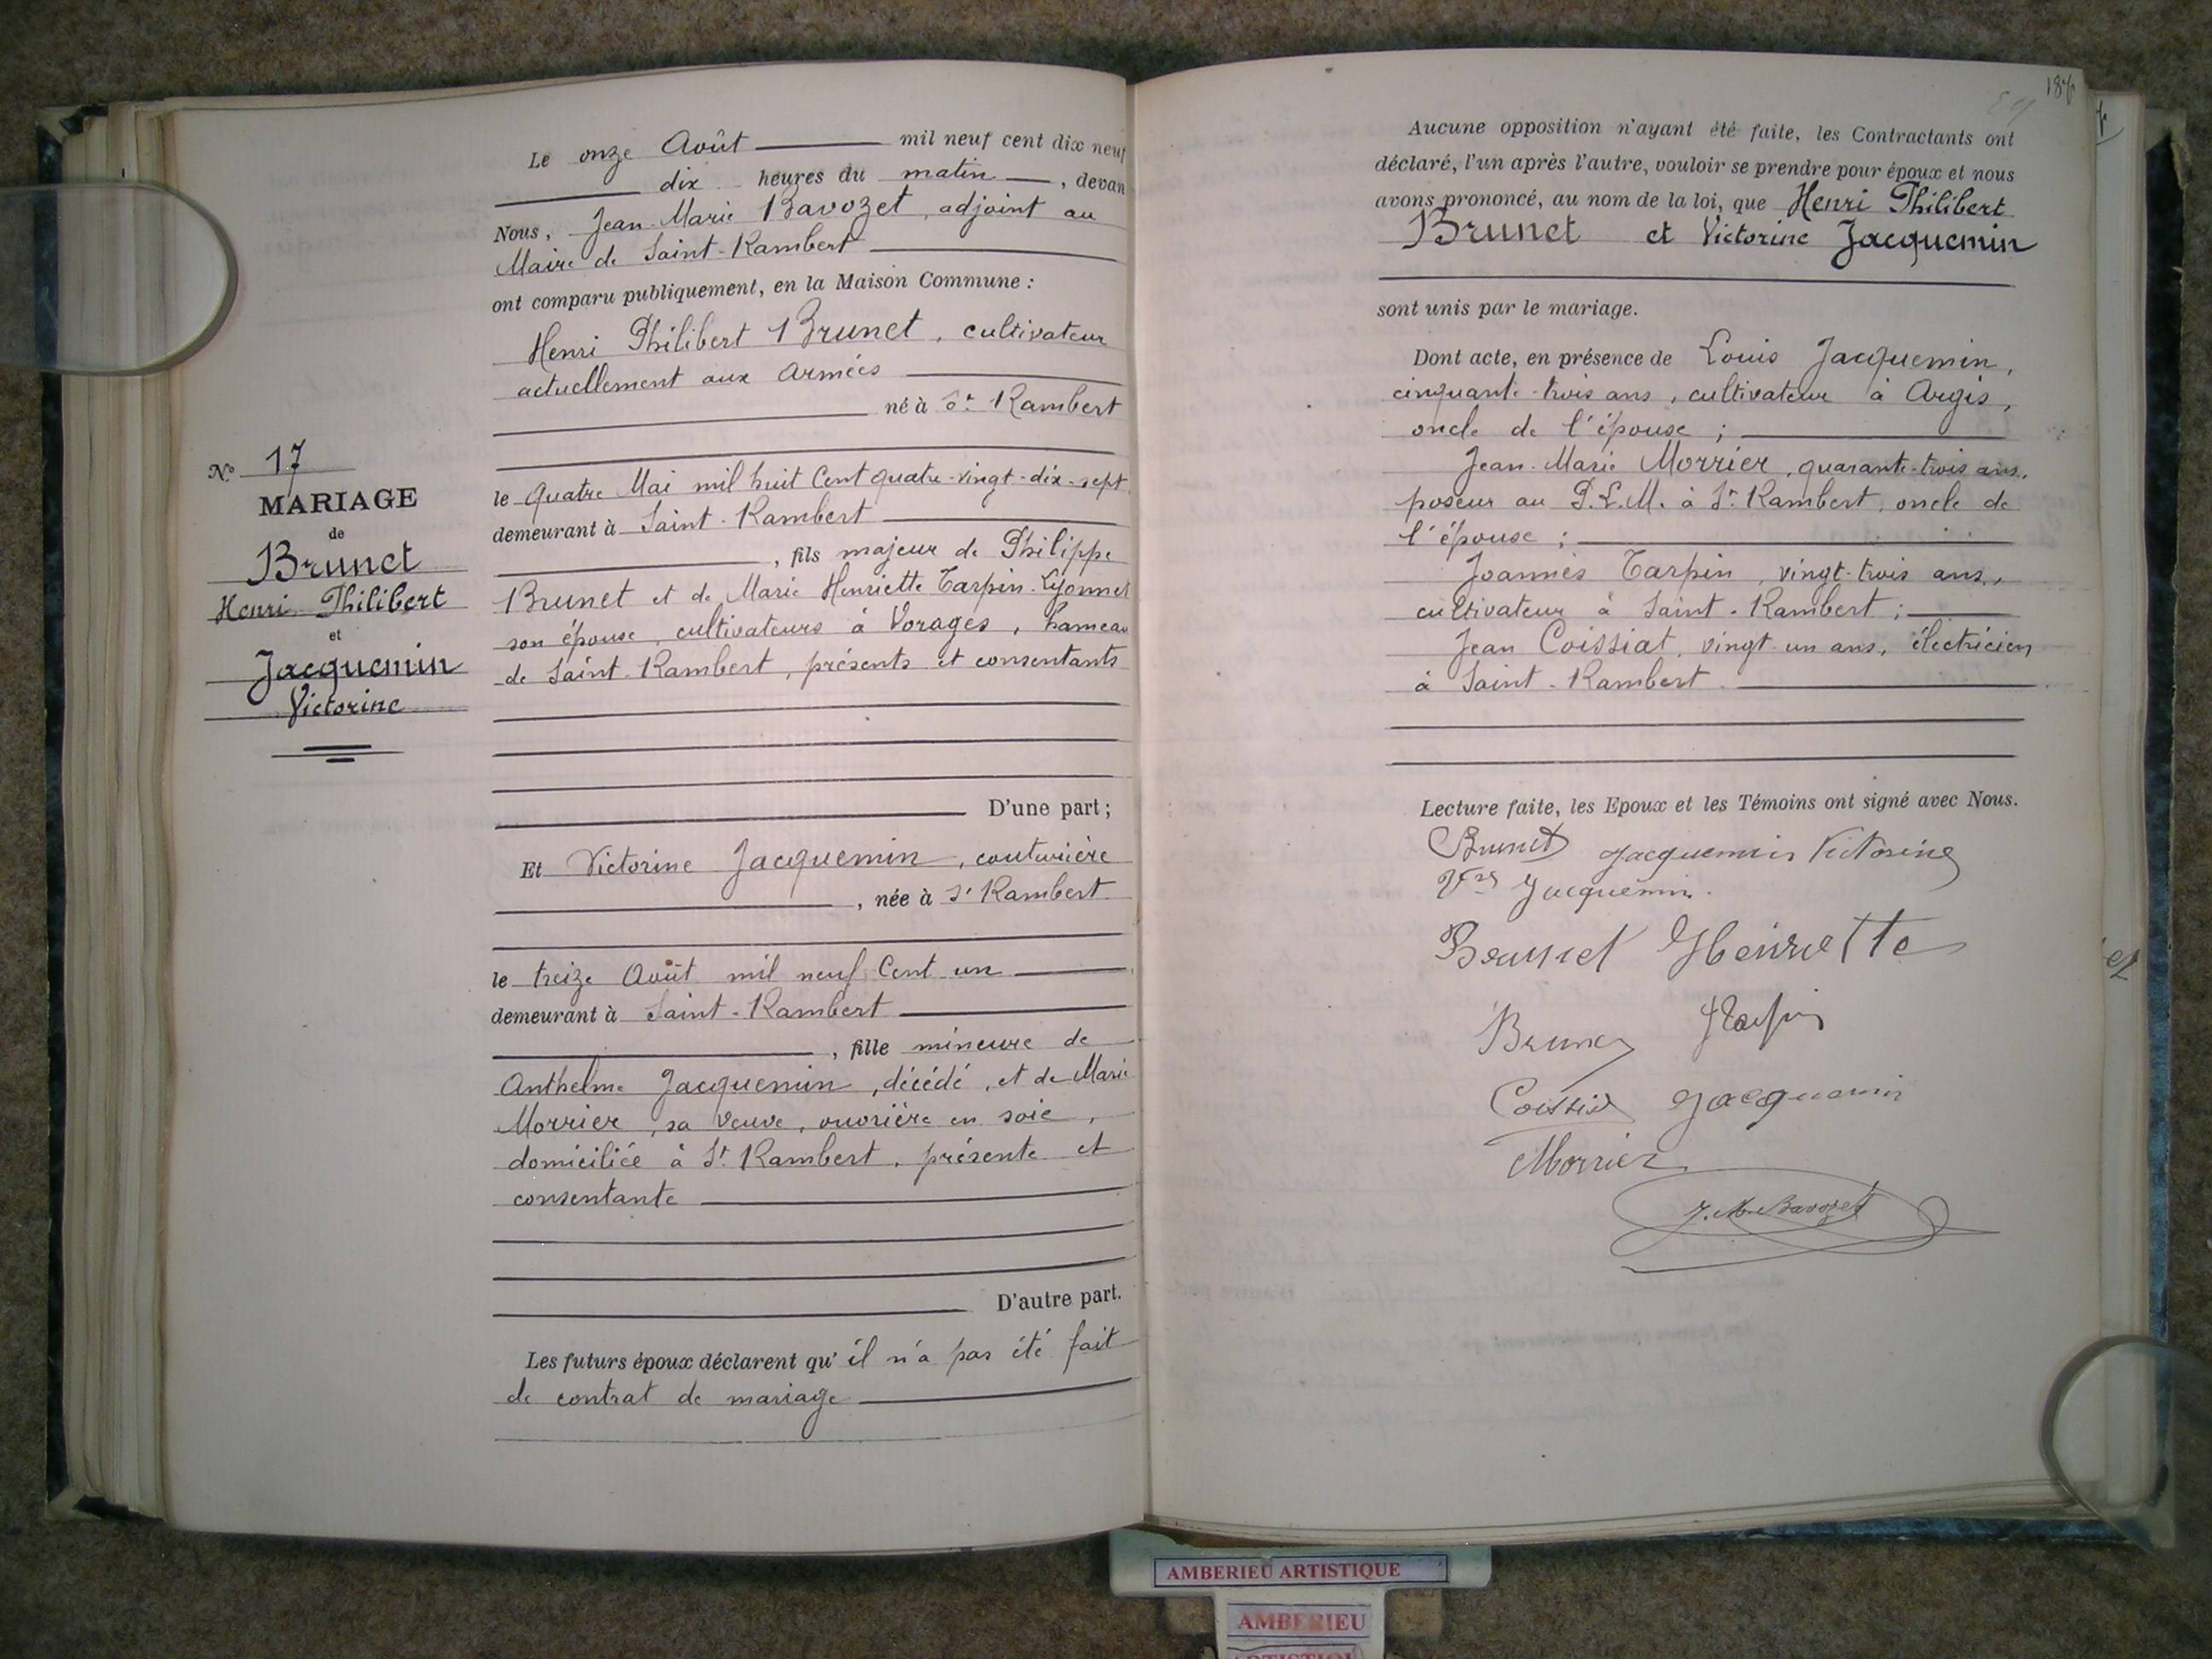 N° 17
MARIAGE
de
Brunet
Henri Philibert
et
Jacquemin
Victorine
Le onze Août mil neuf cent dix neuf
dix heures du matin, devan
Nous, Jean-Marie Bavozet, adjoint au
Maire de Saint-Rambert
ont comparu publiquement, en la Maison Commune :
Henri Philibert Brunet, cultivateur
actuellement aux Armées
né à St Rambert
le quatre Mai mil huit Cent quatre-vingt-dix-sept
demeurant à Saint-Rambert
, fils majeur de Philippe
Brunet et de Marie Henriette Tarpin-Lyonnet
son épouse, cultivateurs à Vorages, hameau
de Saint-Rambert, présents et consentants
D'une part ;
Et Victorine Jacquemin, couturière
, née à St Rambert
le treize Août mil neuf Cent un
demeurant à Saint-Rambert
, fille mineure de
Anthelme Jacquemin, décédé, et de Marie
Morrier, sa veuve, ouvrière en soie,
domiciliée à St Rambert, présente et
consentante
D'autre part.
Les futurs époux déclarent qu' il n'a pas été fait
de contrat de mariage
Aucune opposition n'ayant été faite, les Contractants ont
déclaré, l'un après l'autre, vouloir se prendre pour époux et nous
avons prononcé, au nom de la loi, que Henri Philibert
Brunet et Victorine Jacquemin
sont unis par le mariage.
Dont acte, en présence de Louis Jacquemin,
cinquante-trois ans, cultivateur à Argis,
oncle de l'épouse ;
Jean-Marie Morrier, quarante-trois ans,
poseur au P.L.M. à St Rambert, oncle de
l'épouse ;
Joannès Tarpin, vingt-trois ans,
cultivateur à Saint-Rambert ;
Jean Coissiat, vingt-un ans, électricien
à Saint-Rambert.
Lecture faite, les Epoux et les Témoins ont signé avec Nous.
Brunet Jacquemin Victorine
Vve Jacquemin.
Brunet Henriette
Brunet Tarpin
Coissiat Jacquemin
Morrier
J. M. Bavozet
AMBERIEU ARTISTIQUE
AMBERIEU